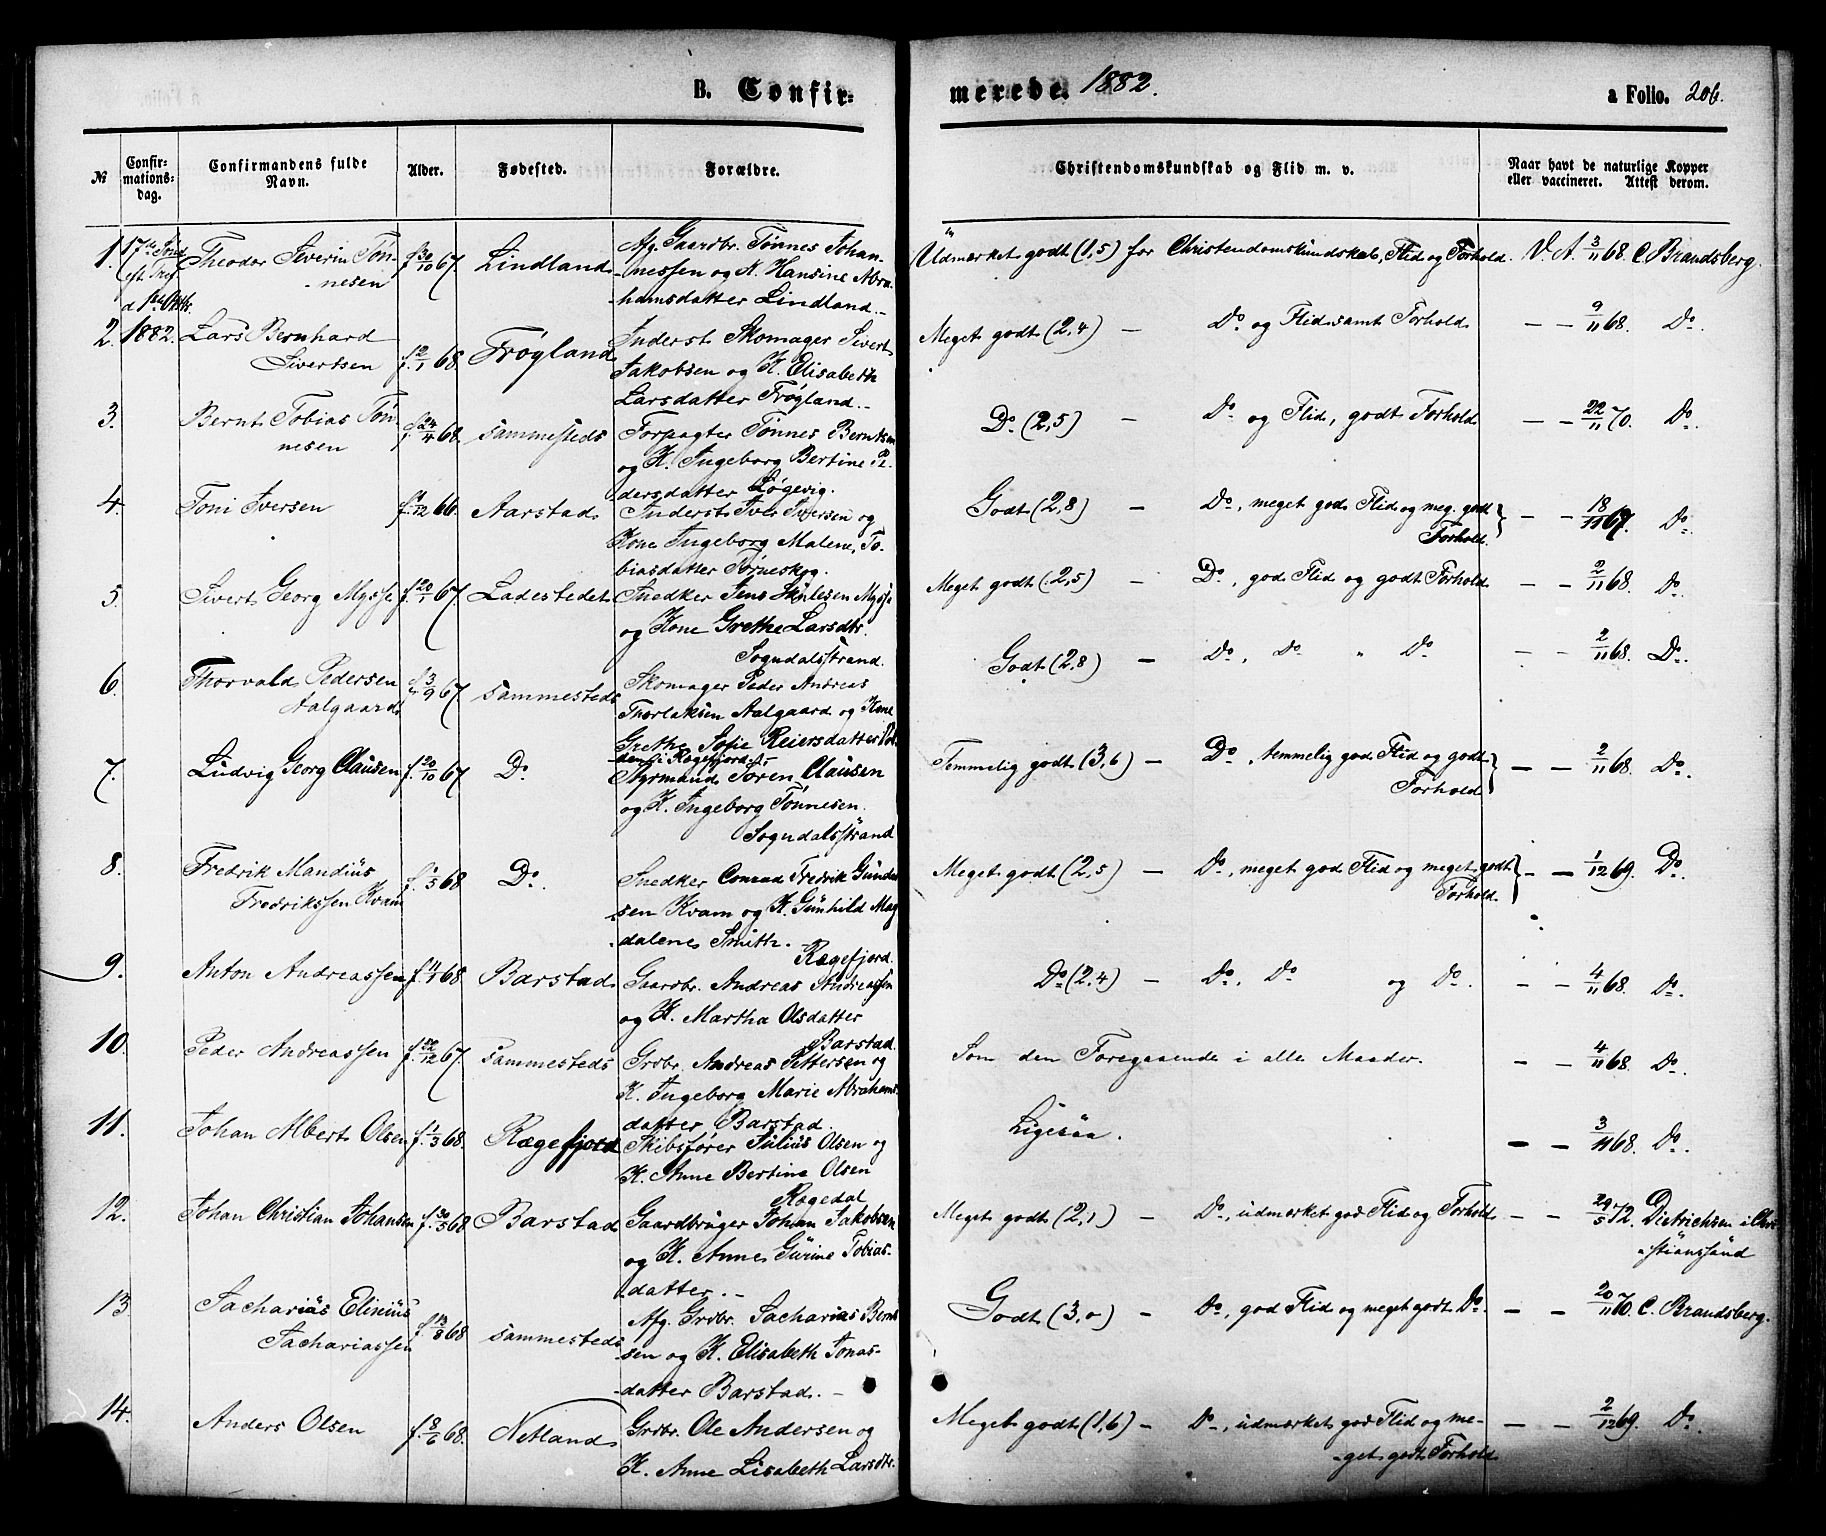 B. Confir-
merede. 1882.
a Folio. 206.
№
Confir-
mations-
dag.
Confirmandens fulde
Navn.
Alder.
Fødested.
Forældre.
Christendomskundskab og Flid m. v.
Naar havt de naturlige Kopper
eller vaccineret. Attest derom.
1. 17de Sønd. Theodor Severin Tøn- f. 30/10 67. Lindland Afg. Gaardbr. Tønnes Johan- Udmærket godt (1,5) for Christendomskundskab, Flid og Forhold. V. A. 3/11 68. C. Brandsberg.
eft. Tref. -nesen -nessen og K. Hansine Abra-
d. 1ste Okt. -hamsdatter Lindland.-
2. 1882. Lars Bernhard f. 2/1 68. Frøgland Inderst Skomager Sivert Meget godt (2,4) — Do og Flid samt Forhold — — 9/11 68. Do.
Sivertsen Jakobsen og K. Elisabeth
Larsdatter Frøgland.-
3. Bernt Tobias Tøn- f. 24/4 68. sammesteds Forpagter Tønnes Berntsen Do (2,5) — Do og Flid, godt Forhold — — 22/11 70. Do.
nesen og K. Ingeborg Bertine Pe-
dersdatter Løgevig.
4. Toni Iversen 12 66. Aarstad Inderst Iver Iversen og Godt (2,8) — Do, meget god Flid og meg. godt — — 18/11 67. Do.
Kone Ingeborg Malene To- Forhold.
biasdatter
5. Sivert Georg Mysse f. 20/1 67. Ladestedet Snedker Jens Mysse Meget godt (2,5) — Do, god Flid og godt Forhold — — 2/11 68. Do.
og Kone Grethe Larsdtr.
Sogndalsstrand.
6. Thorvald Pedersen f. 3/9 67. sammesteds Skomager Peder Andreas Godt (2,8) — Do, Do " Do — — 2/11 68. Do.
Aalgaard Thorlaksen Aalgaard og Kone
Grethe Sofie Reiersdatter
i Rægefjord.
7. Ludvig Georg Clausen f. 20/10 67. Do Styrmand Søren Clausen Temmelig godt (3,6) — Do, temmelig god Flid og godt — — 2/11 68. Do.
og K. Ingeborg Tønnesen. Forhold
Sogndalsstrand
8. Fredrik Mandius f. 1/5 68. Do. Snedker Conrad Fredrik Gunder- Meget godt (2,5) — Do, meget god Flid og meget godt — — 1/12 69. Do.
Fredrikssen Kvam -sen Kvam og K. Gunhild Mag- Forhold.
-dalene Smith.-
Rægefjord.
9. Anton Andreassen f. 4/1 68. Barstad Gaardbr. Andreas Andreassen Do (2,4) — Do, Do og Do. — — 4/11 68. Do.
og K. Martha Olsdatter
Barstad.
10. Peder Andreassen f. 22/12 67. sammesteds Grdbr. Andreas Pettersen og Som den Foregaaende i alle Maader. — — 4/11 68. Do.
K. Ingeborg Marie Abrahams-
datter Barstad.
11. Johan Albert Olsen f. 1/3 68. Rægefjord Skibsfører Julius Olsen og Ligesaa. — — 3/11 68. Do.
K. Anne Bertine Olsen
Rægedal
12. Johan Christian Johansen f. 30/5 68. Barstad Gaardbruger Johan Jakobsen Meget godt (2,1) — Do, udmærket god Flid og Forhold — — 29/5 72. Dietrichsen i Chri-
og K. Anne Gurine Tobias- -stianssand
datter.-
13 Sacharias Elinius f. 12/8 68. sammesteds Afg. Grdbr. Sacharias Bernt- Godt (3,0) — Do, god Flid og meget godt Do. — — 20/11 70. C. Brandsberg.
Sachariassen -sen og K. Elisabeth Jonas-
-datter Barstad.-
14. Anders Olsen f. 8/6 68. Netland Grdbr. Ole Andersen og Meget godt (1,6) — Do, udmærket god Flid og me- — — 2/12 69. Do.
K. Anne Lisabeth Larsdtr. -get godt Forhold